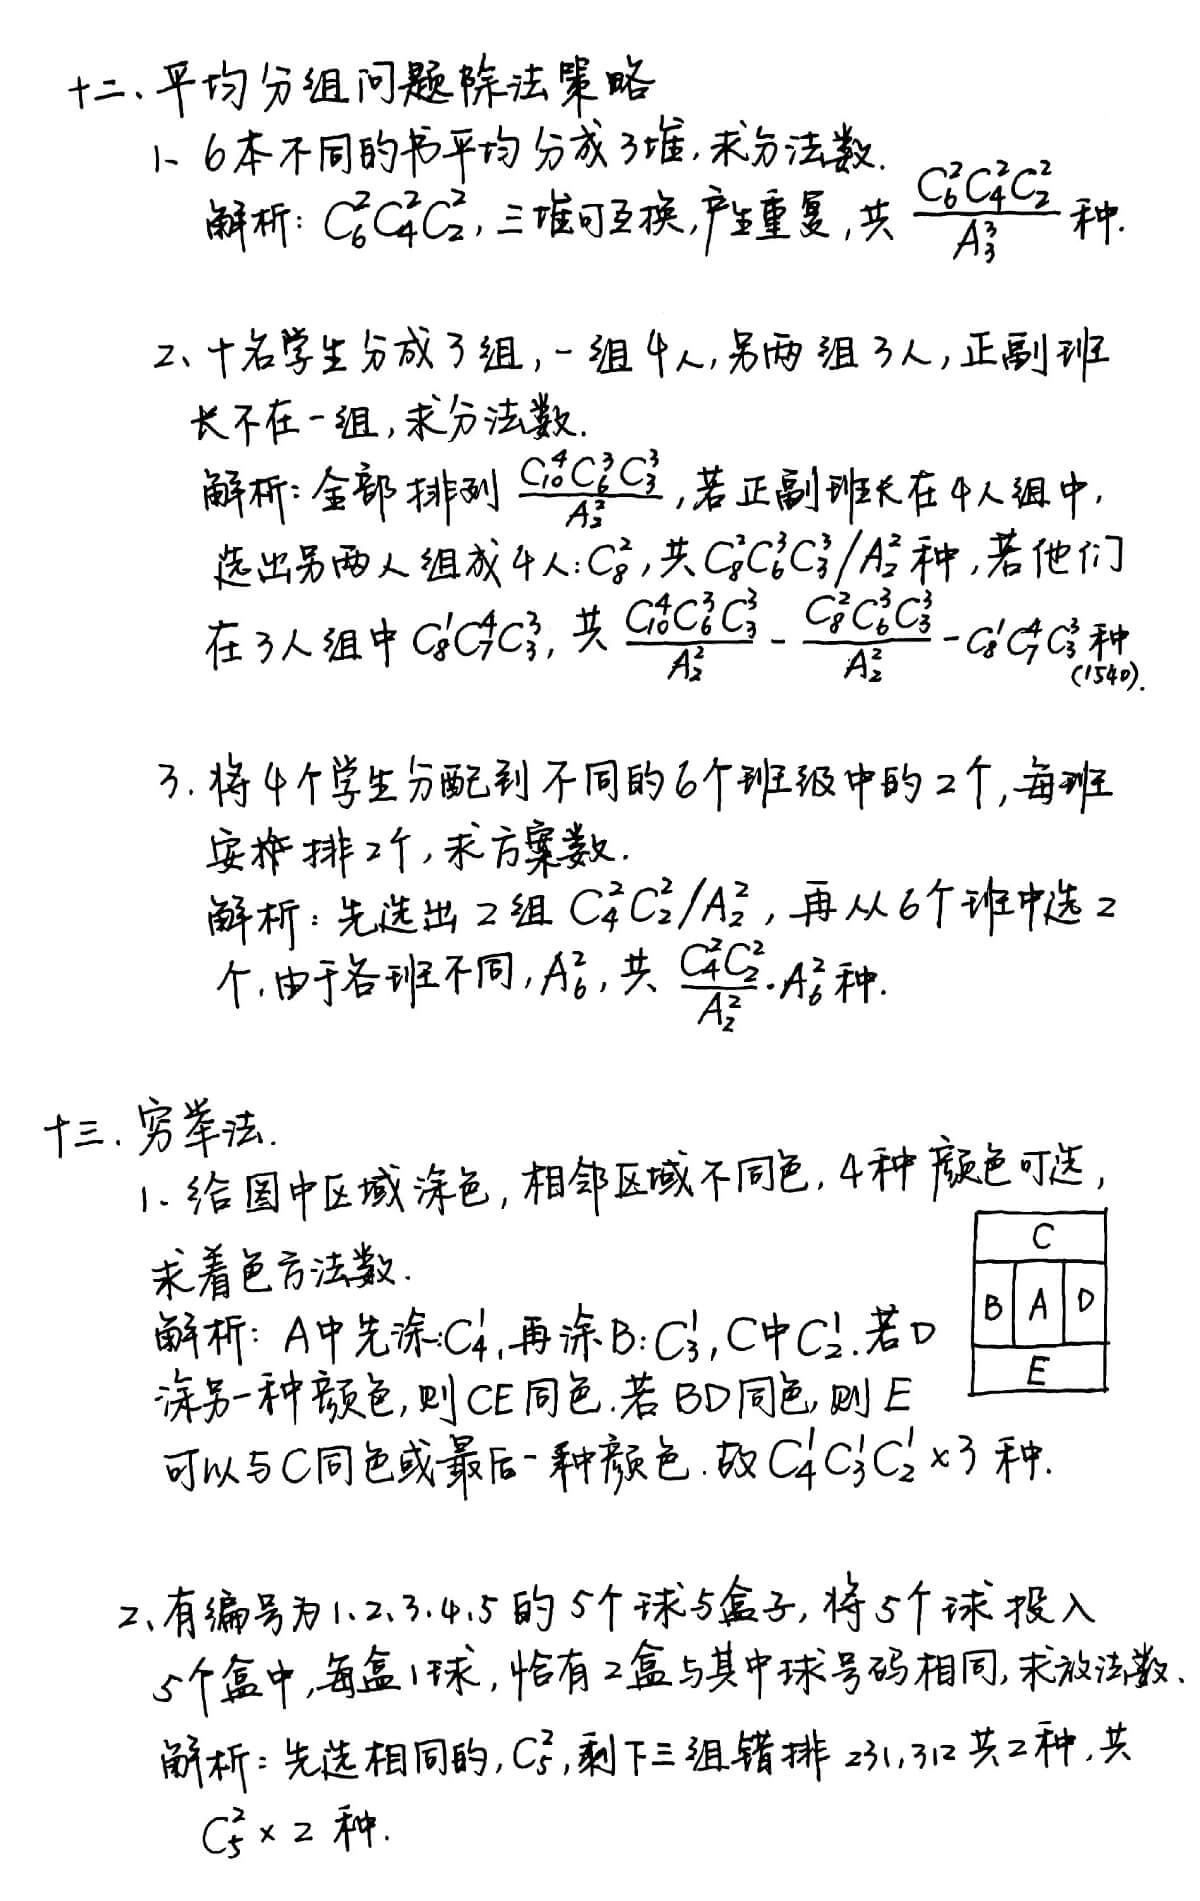 十二、平均分组问题除法策略
1、6本不同的书平均分成3堆,求分法数.
解析: C₆²C₄²C₂²,三堆可互换,产生重复,共 C₆²C₄²C₂²/A₃³ 种.
2、十名学生分成3组,一组4人,另两组3人,正副班
长不在一组,求分法数.
解析:全部排列 C₁₀⁴C₆³C₃³/A₂²,若正副班长在4人组中,
选出另两人组成4人:C₈²,共C₈²C₆³C₃³/A₂²种,若他们
在3人组中C₈¹C₇⁴C₃³,共 C₁₀⁴C₆³C₃³/A₂² - C₈²C₆³C₃³/A₂² - C₈¹C₇⁴C₃³种
(1540).
3.将4个学生分配到不同的6个班级中的2个,每班
安排2个,求方案数.
解析:先选出2组 C₄²C₂²/A₂²,再从6个班中选2
个,由于各班不同,A₆²,共 C₄²C₂²/A₂²·A₆²种.
十三.穷举法.
1.给图中区域涂色,相邻区域不同色,4种颜色可选,
求着色方法数.
解析: A中先涂:C₄¹,再涂B:C₃¹,C中C₂¹.若D
涂另一种颜色,则CE同色.若BD同色,则E
可以与C同色或最后一种颜色.故C₄¹C₃¹C₂¹×3种.
C
B A D
E
2、有编号为1.2.3.4.5的5个球与盒子,将5个球投入
5个盒中,每盒1球,恰有2盒与其中球号码相同,求放法数.
解析:先选相同的,C₅²,剩下三组错排 231,312共2种,共
C₅²×2种.